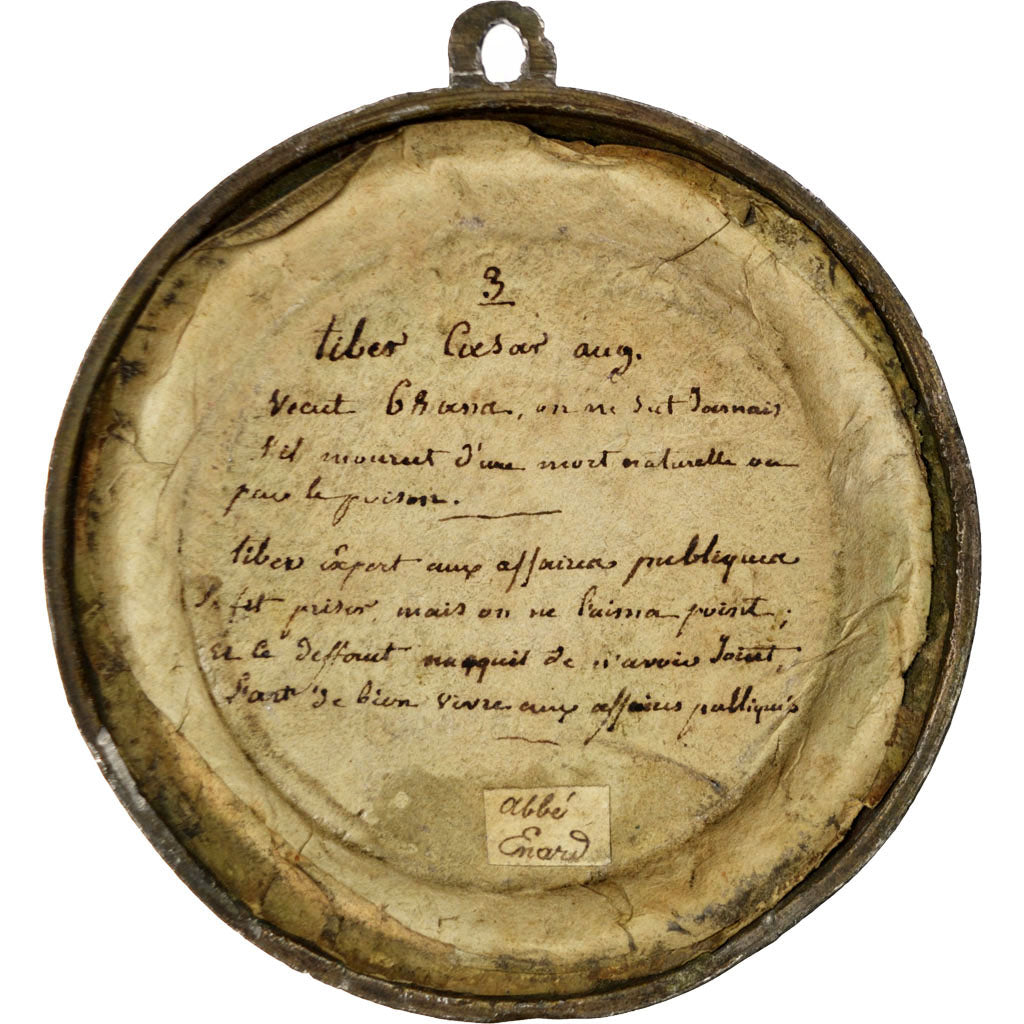 3
tiber Cæsar aug.
Vecut 68 ans, on ne sut Jamais
s'il mourut d'une mort naturelle ou
par le poison.
tiber Expert aux affaires publiques
Se fit priser, mais on ne l'aima point;
Et Ce deffaut naquit de n'avoir Joint,
L'art de bien vivre aux affaires publiques
abbé
Enard